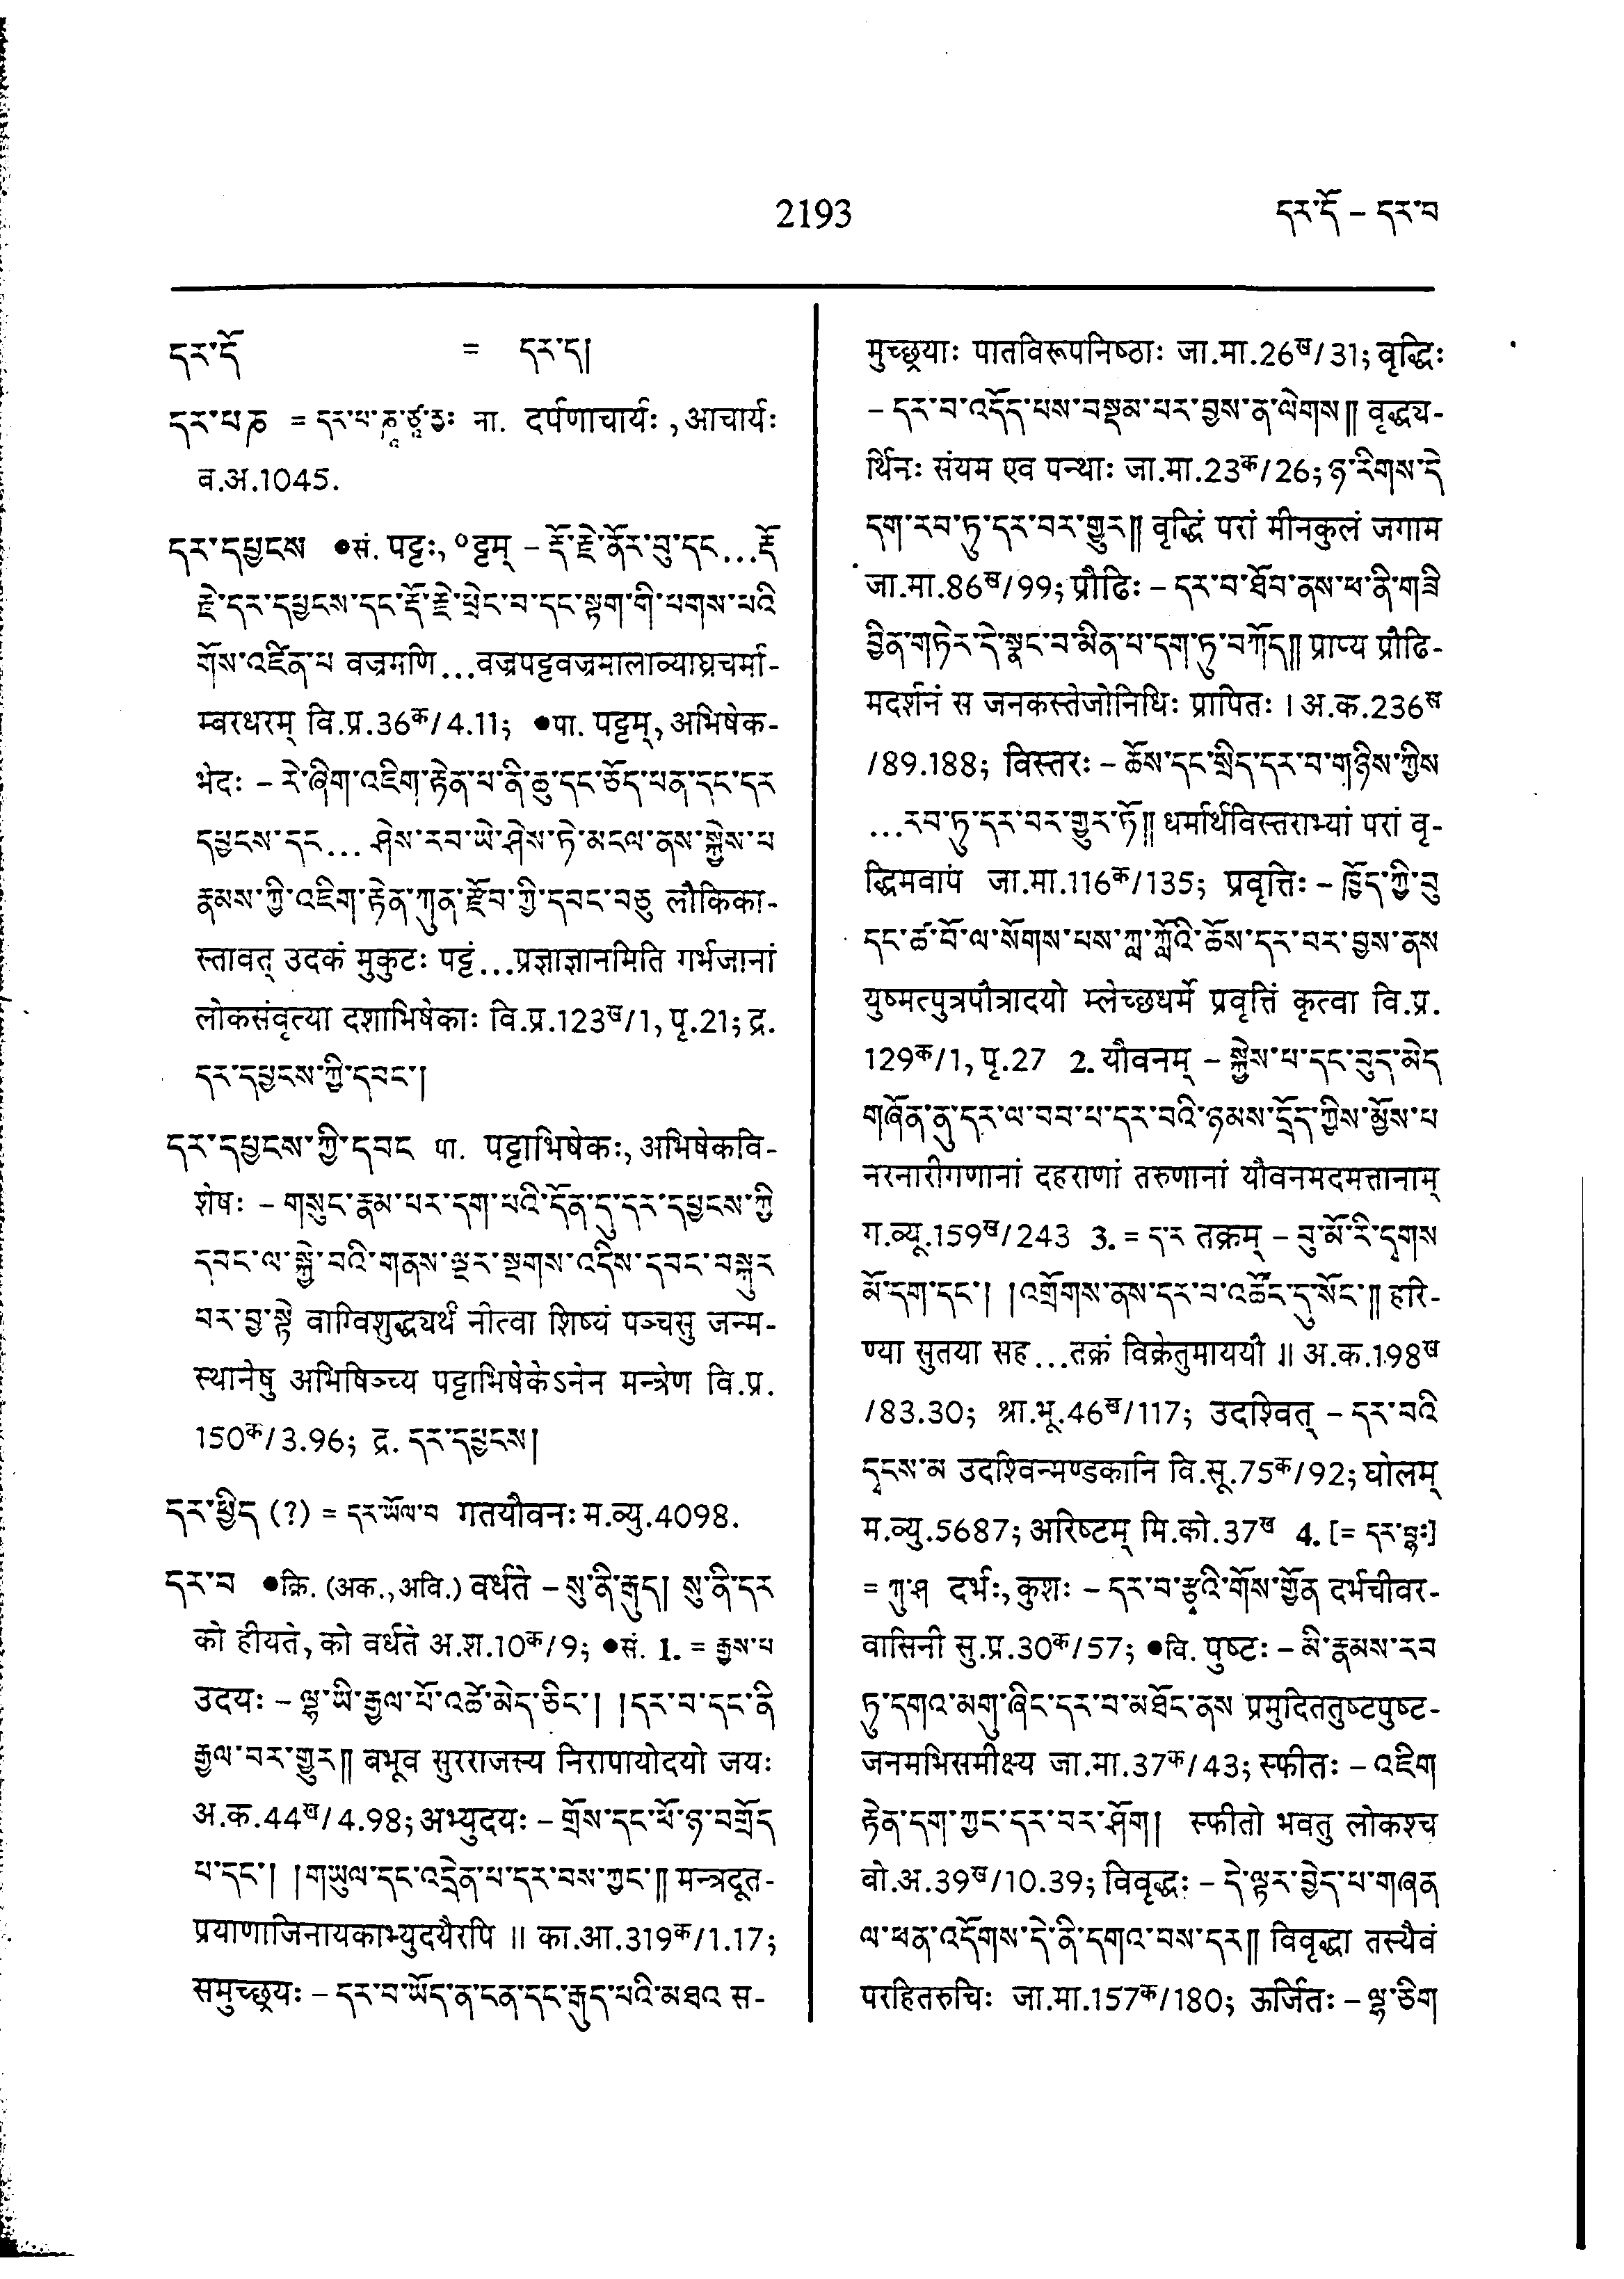 2193
དར་དོ – དར་བ
དར་དོ = དར་ད།
དར་པ་ཎ = དར་པ་ཎཱ་ཙཱརྱཿ ना. दर्पणाचार्यः, आचार्यः
व.अ.1045.
དར་དཔྱངས ●सं. पट्टः, ॰ट्टम् – རྡོ་རྗེ་ནོར་བུ་དང...རྡོ
རྗེ་དར་དཔྱངས་དང་རྡོ་རྗེ་ཕྲེང་བ་དང་སྟག་གི་པགས་པའི
གོས་འཛིན་པ वज्रमणि...वज्रपट्टवज्रमालाव्याघ्रचर्मा-
म्वरधरम् वि.प्र.36क/4.11; ●पा. पट्टम्, अभिषेक-
भेदः – རེ་ཞིག་འཇིག་རྟེན་པ་ནི་ཆུ་དང་ཅོད་པན་དང་དར
དཔྱངས་དང... ཤེས་རབ་ཡེ་ཤེས་ཏེ་མངལ་ནས་སྐྱེས་པ
རྣམས་ཀྱི་འཇིག་རྟེན་ཀུན་རྫོབ་ཀྱི་དབང་བཅུ लौकिका-
स्तावत् उदकं मुकुटः पट्टं...प्रज्ञाज्ञानमिति गर्भजानां
लोकसंवृत्या दशाभिषेकाः वि.प्र.123ख/1, पृ.21; द्र.
དར་དཔྱངས་ཀྱི་དབང་།
དར་དཔྱངས་ཀྱི་དབང पा. पट्टाभिषेकः, अभिषेकवि-
शेषः – གསུང་རྣམ་པར་དག་པའི་དོན་དུ་དར་དཔྱངས་ཀྱི
དབང་ལ་སྐྱེ་བའི་གནས་ལྔར་སྔགས་འདིས་དབང་བསྐུར
བར་བྱ་སྟེ वाग्विशुद्ध्यर्थं नीत्वा शिष्यं पञ्चसु जन्म-
स्थानेषु अभिषिञ्च्य पट्टाभिषेकेऽनेन मन्त्रेण वि.प्र.
150क/3.96; द्र. དར་དཔྱངས།
དར་ཕྱིད (?) = དར་ཡོལ་བ गतयौवनः म.व्यु.4098.
དར་བ ●क्रि. (अक., अवि.) वर्धते – སུ་ནི་རྒུད། སུ་ནི་དར
को हीयते, को वर्धते अ.श.10क/9; ●सं. 1. = རྒྱས་པ
उदयः – ལྷ་ཡི་རྒྱལ་པོ་འཚེ་མེད་ཅིང་། །དར་བ་དང་ནི
རྒྱལ་བར་གྱུར॥ बभूव सुरराजस्य निरापायोदयो जयः
अ.क.44ख/4.98; अभ्युदयः – གྲོས་དང་ཕོ་ཉ་བགྲོད
པ་དང་། །གཡུལ་དང་འདྲེན་པ་དར་བས་ཀྱང་॥ मन्त्रदूत-
प्रयाणाजिनायकाभ्युदयैरपि ॥ का.आ.319क/1.17;
समुच्छ्रयः – དར་བ་ཡོད་ན་ངན་དང་རྒུད་པའི་མཐའ स-
मुच्छ्रयाः पातविरूपनिष्ठाः जा.मा.26ख/31; वृद्धिः
– དར་བ་འདོད་པས་བསྡམ་པར་བྱས་ན་ལེགས॥ वृद्ध्य-
र्थिनः संयम एव पन्थाः जा.मा.23क/26; ཉ་རིགས་དེ
དག་རབ་ཏུ་དར་བར་གྱུར॥ वृद्धिं परां मीनकुलं जगाम
जा.मा.86ख/99; प्रौढिः – དར་བ་ཐོབ་ནས་ཕ་ནི་གཟི
བྱིན་གཏེར་དེ་སྣང་བ་མིན་པ་དག་ཏུ་བཀོད॥ प्राप्य प्रौढि-
मदर्शनं स जनकस्तेजोनिधिः प्रापितः । अ.क.236ख
/89.188; विस्तरः – ཆོས་དང་སྲིད་དར་བ་གཉིས་ཀྱིས
...རབ་ཏུ་དར་བར་གྱུར་ཏོ॥ धर्मार्थविस्तराभ्यां परां वृ-
द्धिमवाप जा.मा.116क/135; प्रवृत्तिः – ཁྱོད་ཀྱི་བུ
དང་ཚ་བོ་ལ་སོགས་པས་ཀླ་ཀློའི་ཆོས་དར་བར་བྱས་ནས
युष्मत्पुत्रपौत्रादयो म्लेच्छधर्मे प्रवृत्तिं कृत्वा वि.प्र.
129क/1, पृ.27 2. यौवनम् – སྐྱེས་པ་དང་བུད་མེད
གཞོན་ནུ་དར་ལ་བབ་པ་དར་བའི་ཉམས་དྲོད་ཀྱིས་མྱོས་པ
नरनारीगणानां दहराणां तरुणानां यौवनमदमत्तानाम्
ग.व्यू.159ख/243 3. = ད་ར तक्रम् – བུ་མོ་རི་དྭགས
མོ་དག་དང་། །འགྲོགས་ནས་དར་བ་འཚོང་དུ་སོང་॥ हरि-
ण्या सुतया सह...तक्रं विक्रेतुमाययौ ॥ अ.क.198ख
/83.30; श्रा.भू.46ख/117; उदश्वित् – དར་བའི
དྭངས་མ उदश्विन्मण्डकानि वि.सू.75क/92; घोलम्
म.व्यु.5687; अरिष्टम् मि.को.37ख 4. [= དར་བྷཿ]
= ཀུ་ཤ दर्भः, कुशः – དར་བ་རྩྭའི་གོས་གྱོན दर्भचीवर-
वासिनी सु.प्र.30क/57; ●वि. पुष्टः – མི་རྣམས་རབ
ཏུ་དགའ་མགུ་ཞིང་དར་བ་མཐོང་ནས प्रमुदिततुष्टपुष्ट-
जनमभिसमीक्ष्य जा.मा.37क/43; स्फीतः – འཇིག
རྟེན་དག་ཀྱང་དར་བར་ཤོག། स्फीतो भवतु लोकश्च
बो.अ.39ख/10.39; विवृद्धः – དེ་ལྟར་བྱེད་པ་གཞན
ལ་ཕན་འདོགས་དེ་ནི་དགའ་བས་དར॥ विवृद्धा तस्यैवं
परहितरुचिः जा.मा.157क/180; ऊर्जितः – ལྷ་ཅིག